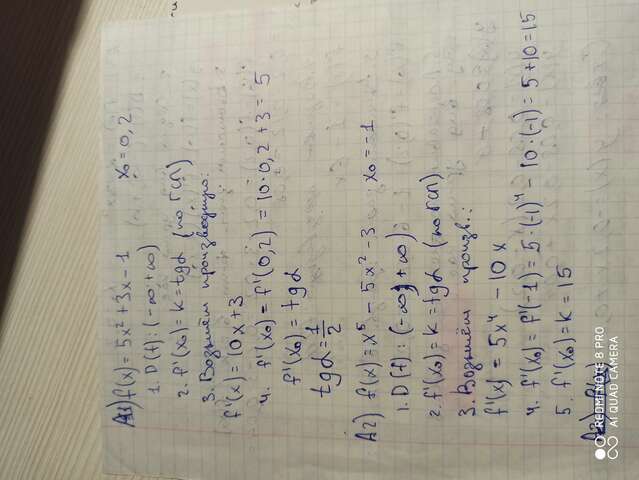 А1) f(x) = 5x² + 3x - 1 x₀ = 0,2
1. D(f): (-∞ +∞)
2. f'(x₀) = k = tgα (по ГСП)
3. Возьмём производную:
f'(x) = 10x + 3
4. f'(x₀) = f'(0,2) = 10·0,2 + 3 = 5
f'(x₀) = tgα
tgα = 1/2
А2) f(x) = x⁵ - 5x² - 3 x₀ = -1
1. D(f): (-∞; +∞)
2. f'(x₀) = k = tgα (по ГСП)
3. Возьмём произв.:
f'(x) = 5x⁴ - 10x
4. f'(x₀) = f'(-1) = 5·(-1)⁴ - 10·(-1) = 5 + 10 = 15
5. f'(x₀) = k = 15
REDMI NOTE 8 PRO
AI QUAD CAMERA